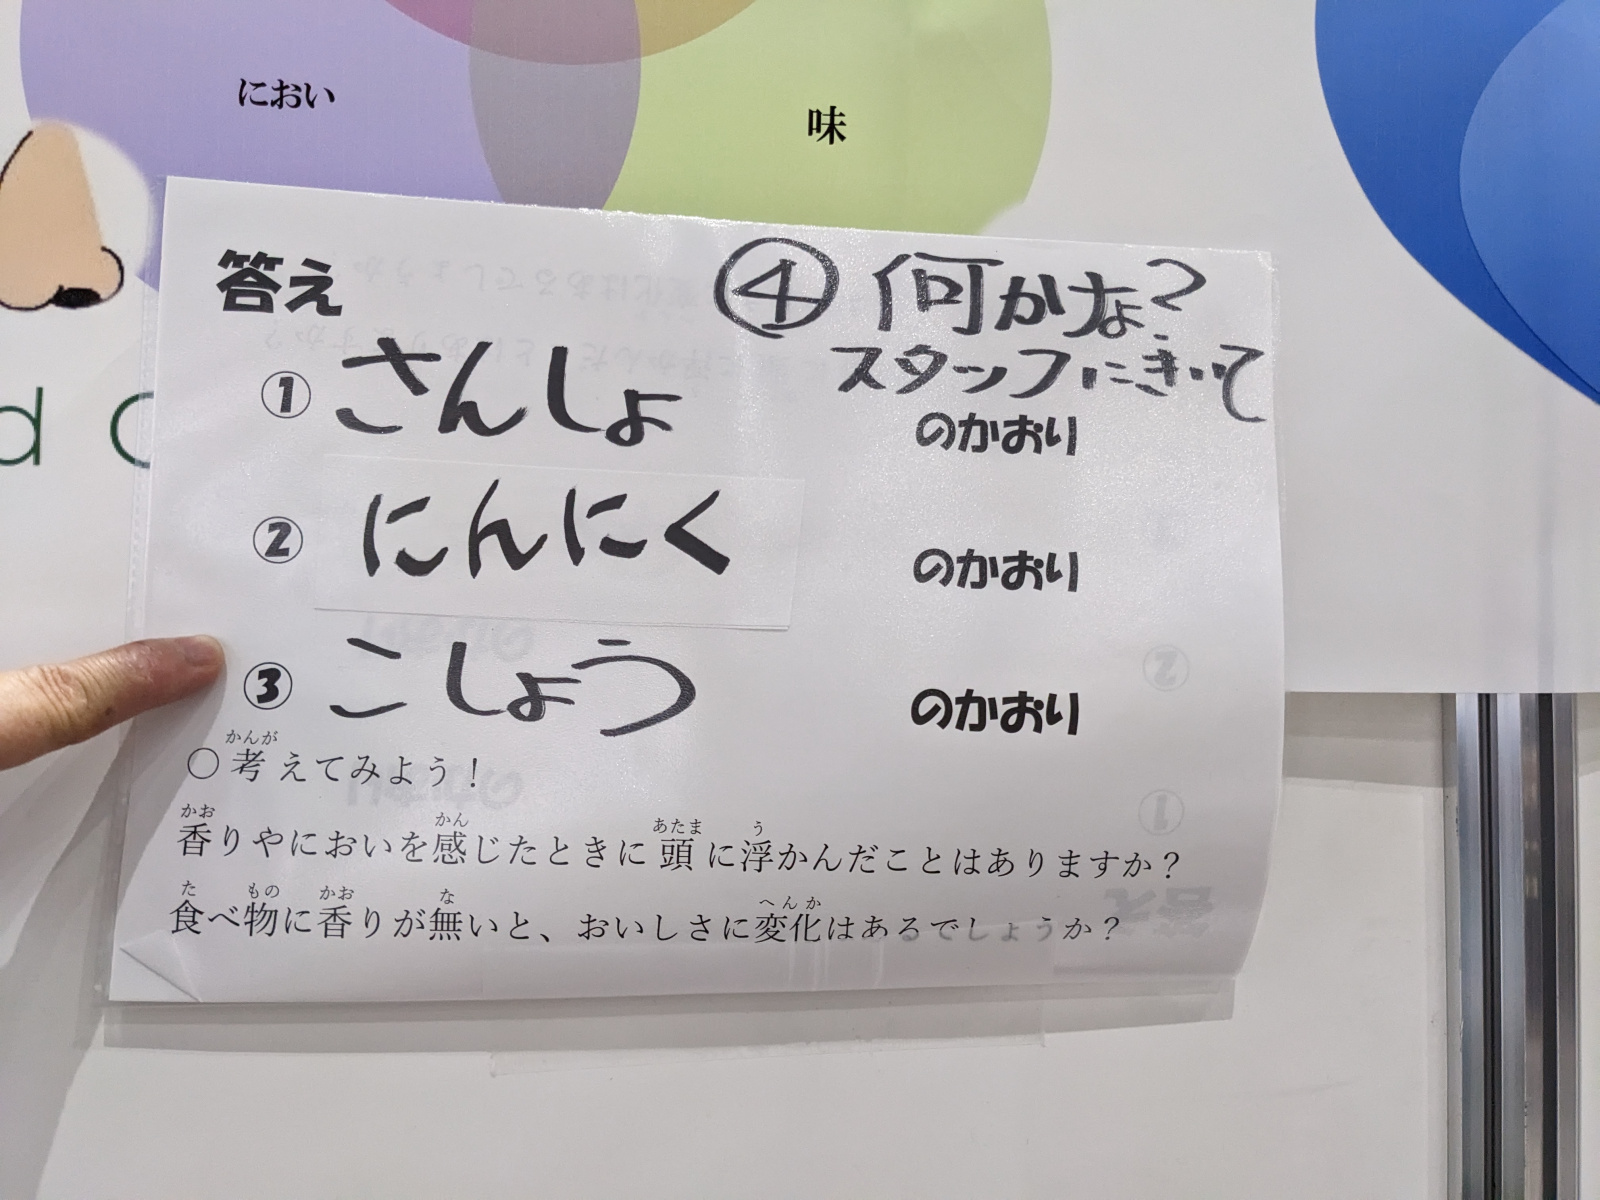 におい
味
d
答え
④ 何かな?
スタッフにきいて
① さんしょ のかおり
② にんにく のかおり
③ こしょう のかおり
かんが
○考えてみよう!
かお かん あたま う
香りやにおいを感じたときに頭に浮かんだことはありますか?
た もの かお な へんか
食べ物に香りが無いと、おいしさに変化はあるでしょうか?